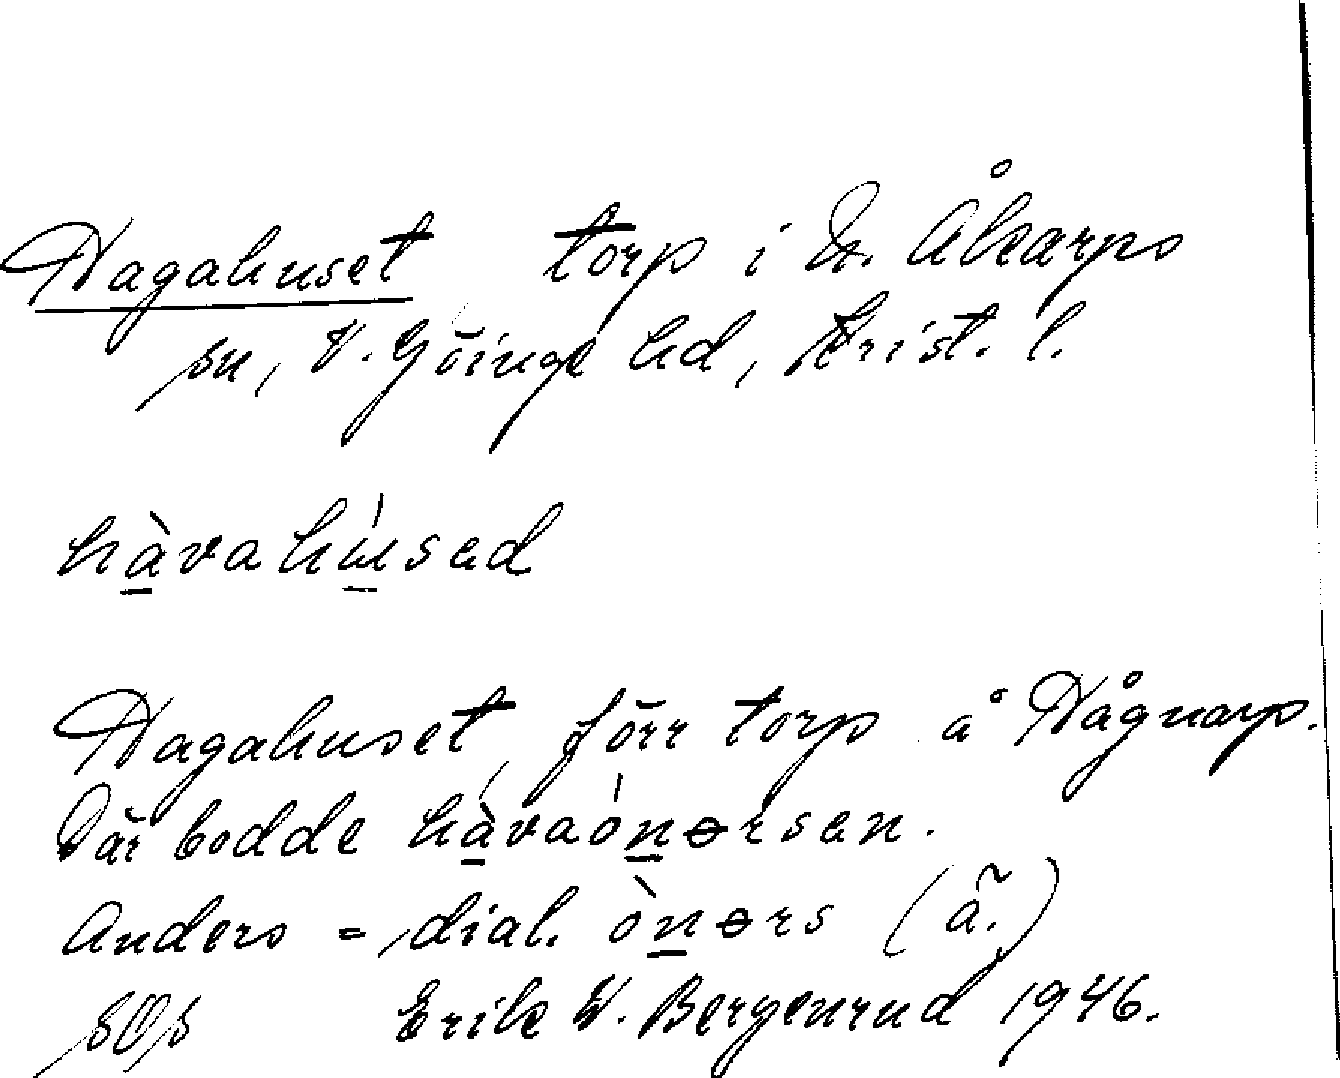 Hagahuset, torp i N. Åkarps
sn, V. Göinge hd, Krist. l.
hàvahúsad
Hagahuset, förr torp å Hågnarp.
Där bodde hàvaónərsen.
Anders = dial. ònərs (ã.)
SOS Erik W. Bergenrud 1946.